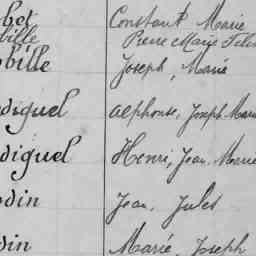 bet Constant Marie
bille Pierre Marie Félix
bille Joseph, Marie
diguel Alphonse, Joseph Marie
diguel Henri, Jean Marie
din Jean, Jules
din Marie, Joseph